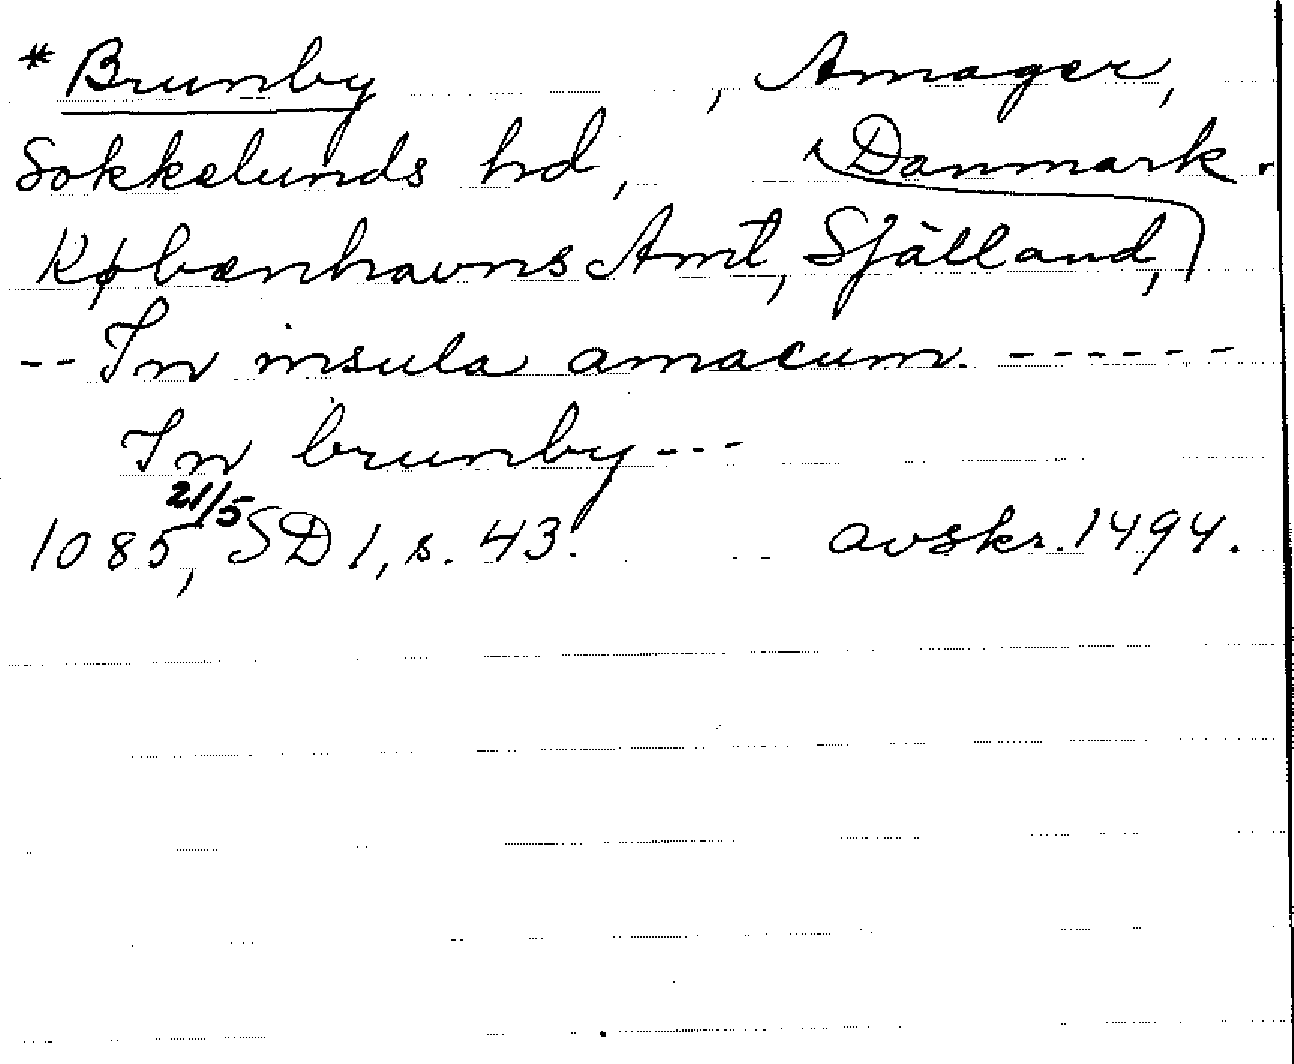 * Brunby , Amager,
Sokkelunds hd, Danmark.
Københavns Amt, Själland,
-- In insula amacum. ------
In brunby ---
1085 21/5, SD 1, s. 43. avskr. 1494.